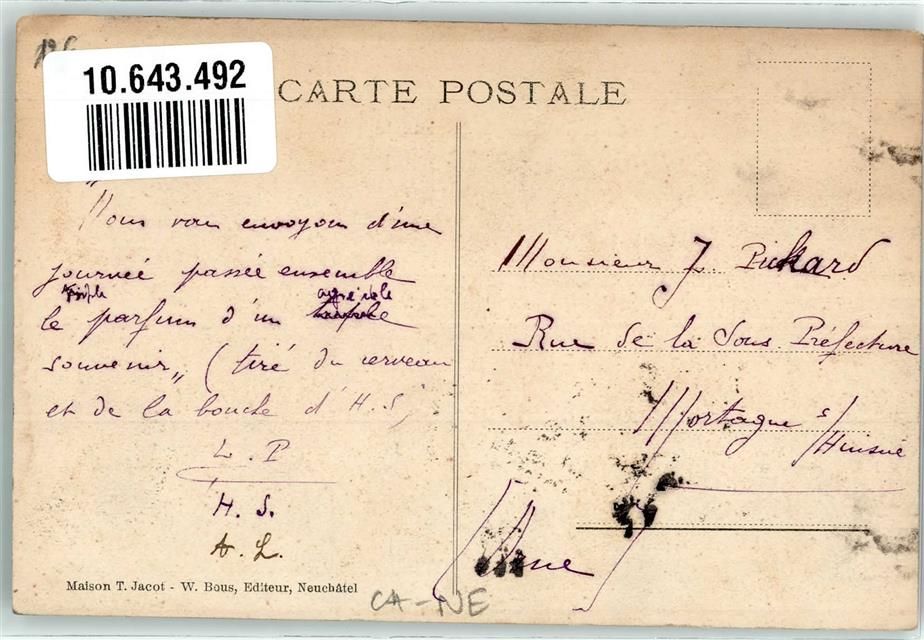 10.643.492
CARTE POSTALE
"Nous vous envoyons d'une
journée passée ensemble
triple agréable
le parfum d'un
souvenir" (tiré du cerveau
et de la bouche d'H.S)
L. P
H. S.
A. L.
Maison T. Jacot - W. Bous, Editeur, Neuchâtel
CA-NE
Monsieur J. Pickard
Rue de la Sous Préfecture
Mortagne s/
Huisne
Orne